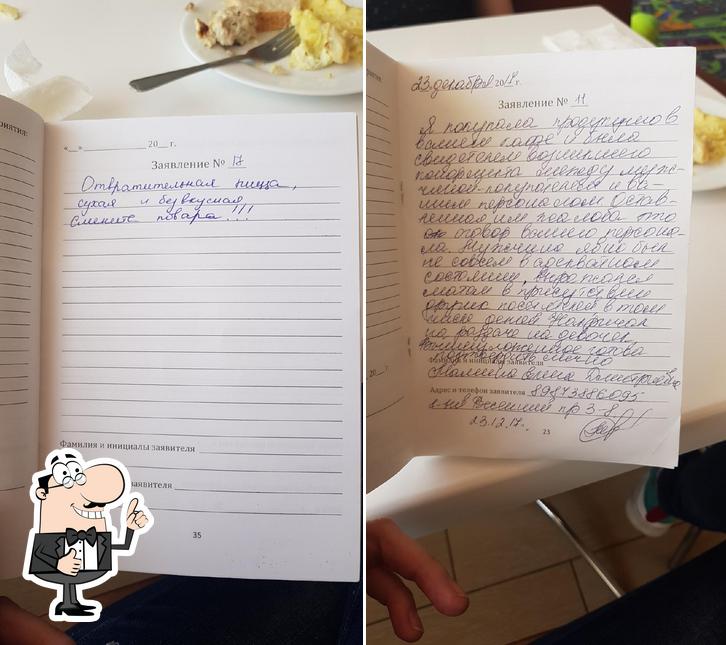 риятия:
«__» ____________ 20__ г.
Заявление № 17
Отвратительная пища,
сухая и безвкусная
Смените повара...!!!
Фамилия и инициалы заявителя
заявителя
35
23 декабря 2017 г.
Заявление № 11
Я покупала продукцию в
вашем кафе и была
свидетелем возникшего
конфликта между муж-
чиной-покупателем и ва-
шим персоналом. Остав-
ленная им жалоба это
оговор вашего персона-
ла. Мужчина явно был
не совсем в адекватном
состоянии, выражался
матом в присутствии
других посетителей в том
числе детей. Накричал
на раздаче на девочек.
Вышеизложенное готова
подтвердить лично
Фамилия и инициалы заявителя
Елена Дмитриевна
Адрес и телефон заявителя 89873886095
пр 3-8,
23.12.17г.
23
20__ г.